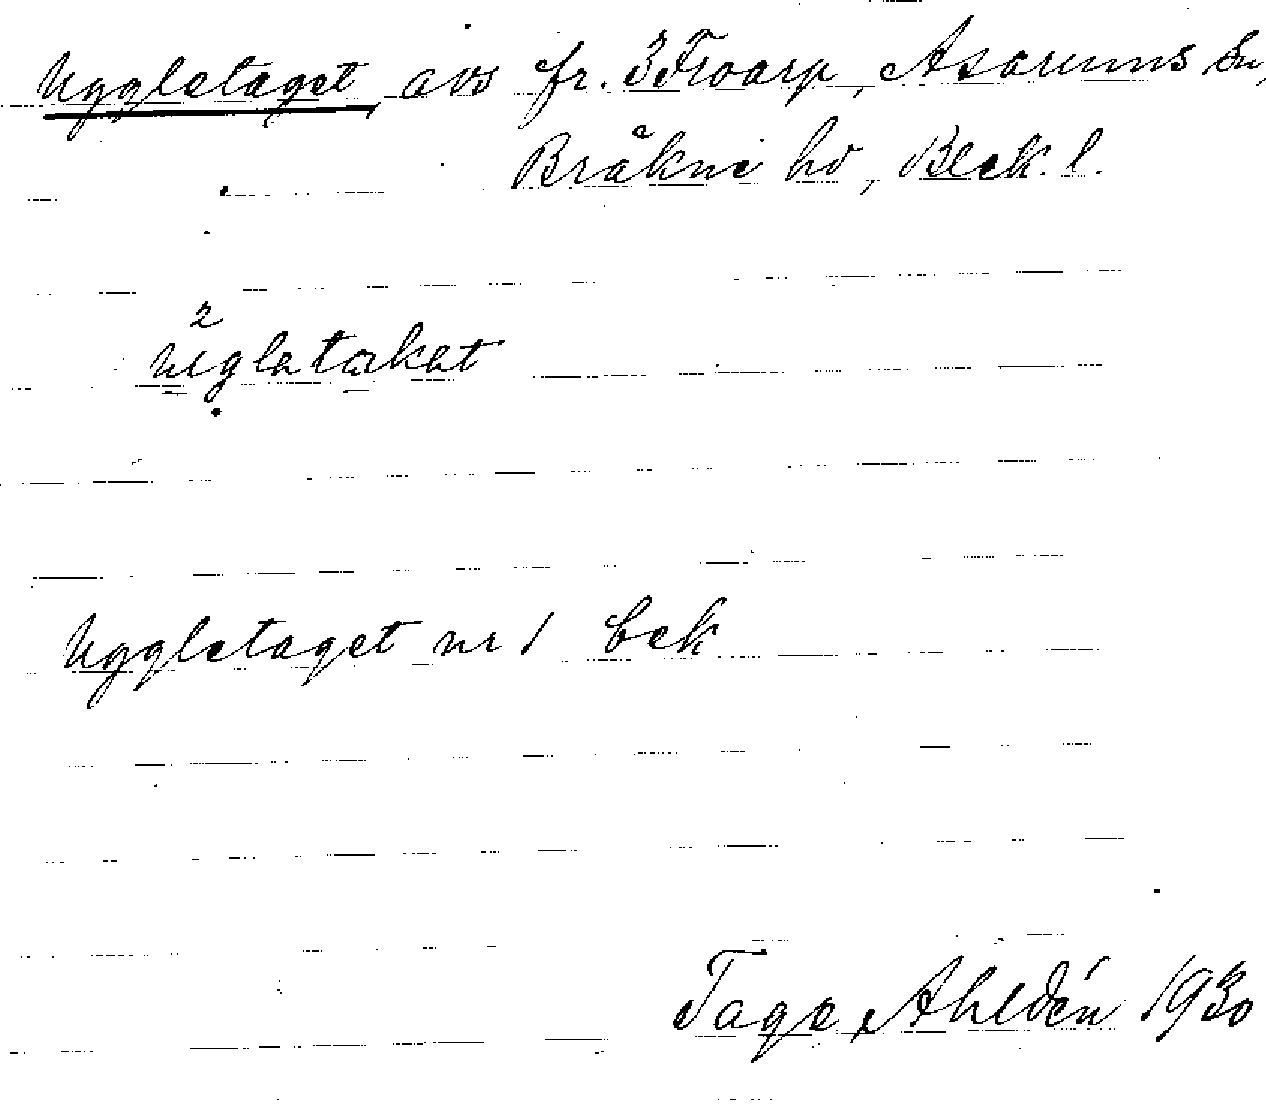 Uggletaget avs fr. 3 Froarp, Asarums sn,
Bräkne hd, Blek. l.
2
uglatakat
Uggletaget nr 1 bek
Tage Ahldén 1930